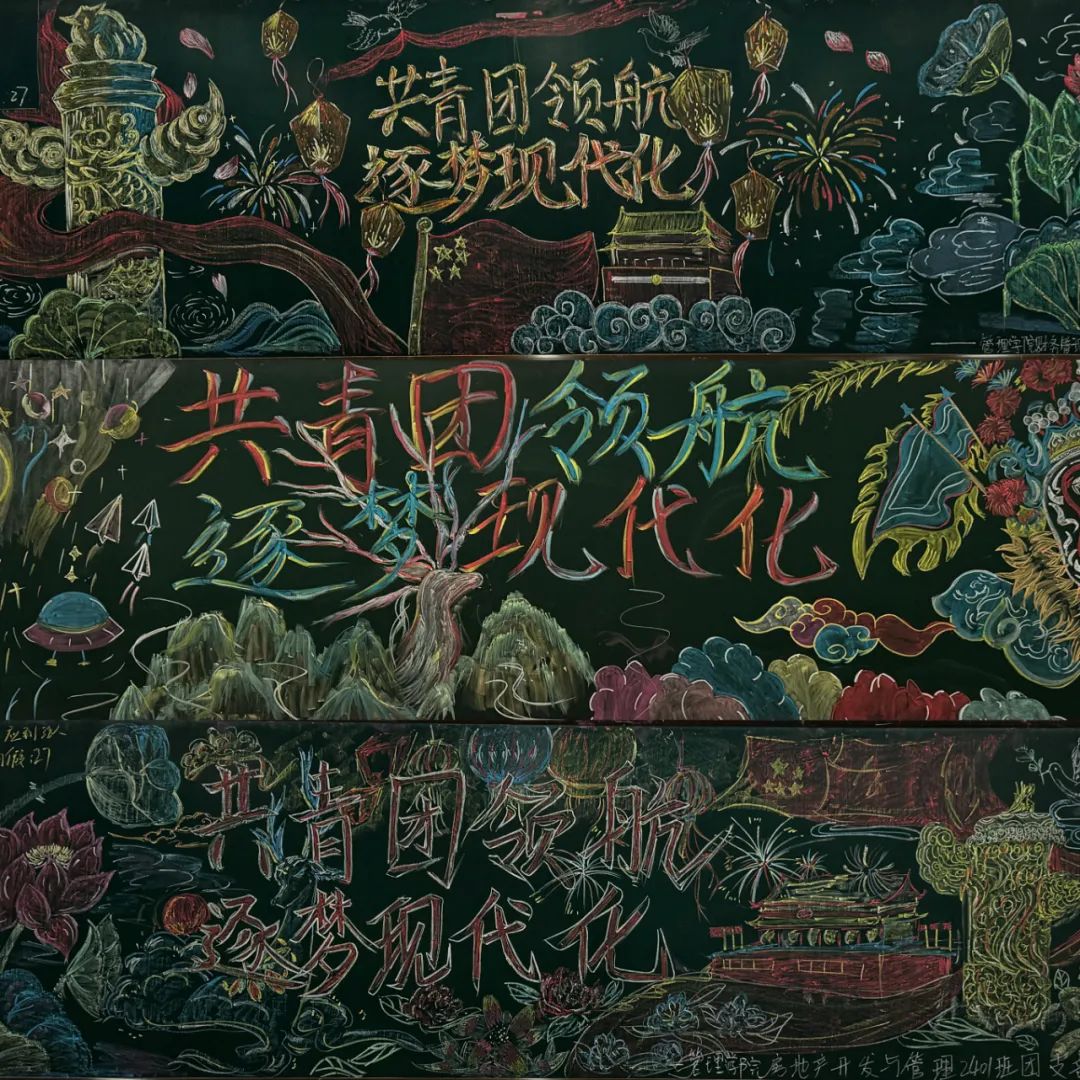 27
共青团领航
逐梦现代化
管理学院财务管理
共青团领航
逐梦现代化
27
共青团领航
逐梦现代化
管理学院房地产开发与管理2401班团支